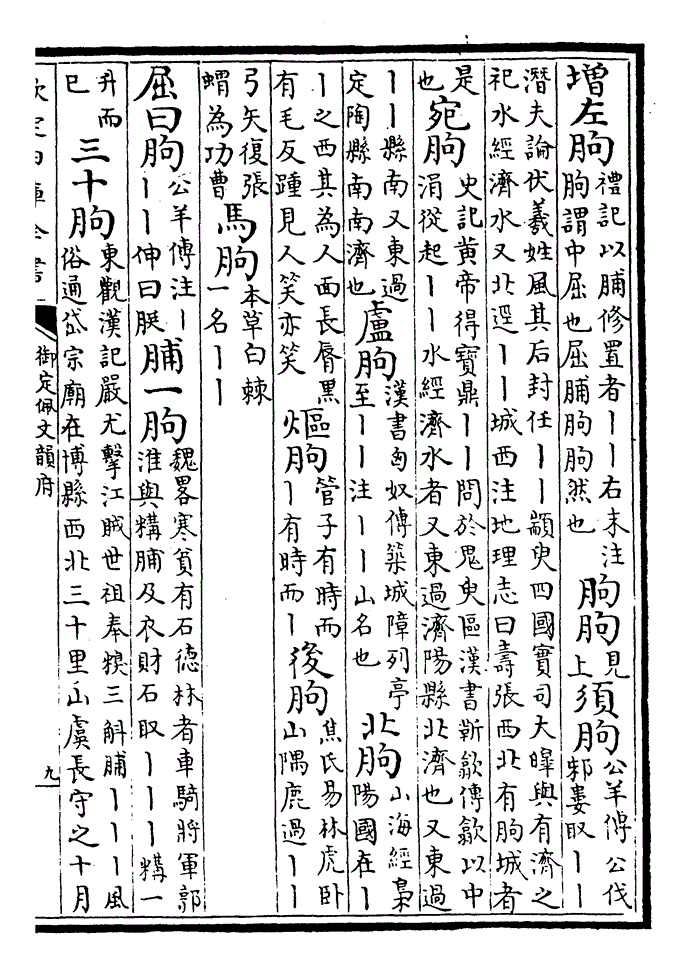 增左朐 禮記以脯修置者丨丨右末注朐謂中屈也屈脯朐朐然也 朐朐 見上 須朐 公羊傳公伐邾婁取丨丨
潛夫論伏羲姓風其后封任丨丨顓臾四國實司大皥與有濟之祀水經濟水又北逕丨丨城西注地理志曰壽張西北有朐城者
是也 宛朐 史記黄帝得寶鼎丨丨問於鬼臾區漢書靳歙傳歙以中涓從起丨丨水經濟水者又東過濟陽縣北濟也又東過
丨丨縣南又東過定陶縣南南濟也 盧朐 漢書匈奴傳築城障列亭至丨丨注丨丨山名也 北朐 山海經梟陽國在丨
丨之西其為人面長脣黑有毛反踵見人笑亦笑 熰朐 管子有時而丨有時而丨 後朐 焦氏易林虎卧山隅鹿過丨丨
弓矢復張蝟為功曹 馬朐 本草白棘一名丨丨
屈曰朐 公羊傳注丨丨丨伸曰脡 脯一朐 魏畧寒貧有石德林者車騎將軍郭淮與糒脯及衣財石取丨丨丨糒一
升而已 三十朐 東觀漢記嚴尤擊江賊世祖奉糗三斛脯丨丨丨風俗通岱宗廟在博縣西北三十里山虞長守之十月
欽定四庫全書 御定佩文韻府 九